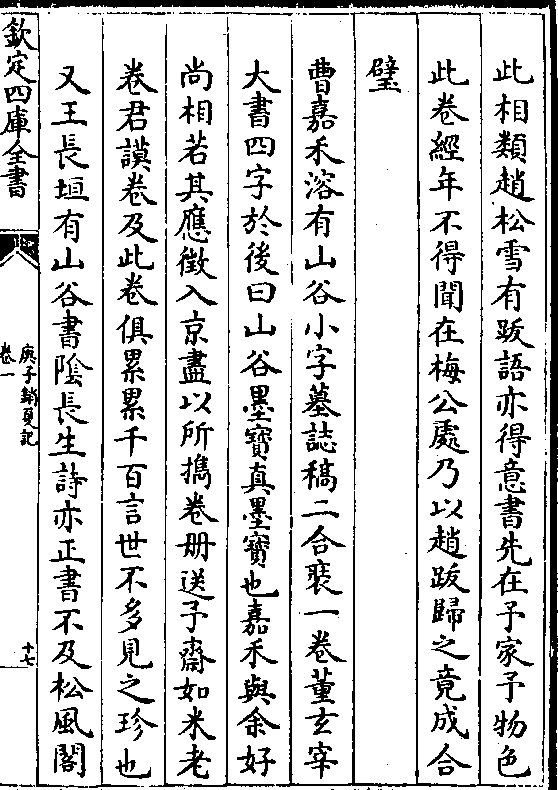 此相類趙松雪有跋語亦得意書先在予家予物色
此卷經年不得聞在梅公處乃以趙跋歸之竟成合
璧
曹嘉禾溶有山谷小字墓誌稿二合裝一卷董玄宰
大書四字於後曰山谷墨寶真墨寶也嘉禾與余好
尚相若其應徵入京盡以所擕卷册送予齋如米老
卷君謨卷及此卷俱累累千百言世不多見之珍也
又王長垣有山谷書陰長生詩亦正書不及松風閣
欽定四庫全書
庚子銷夏記
卷一
十七